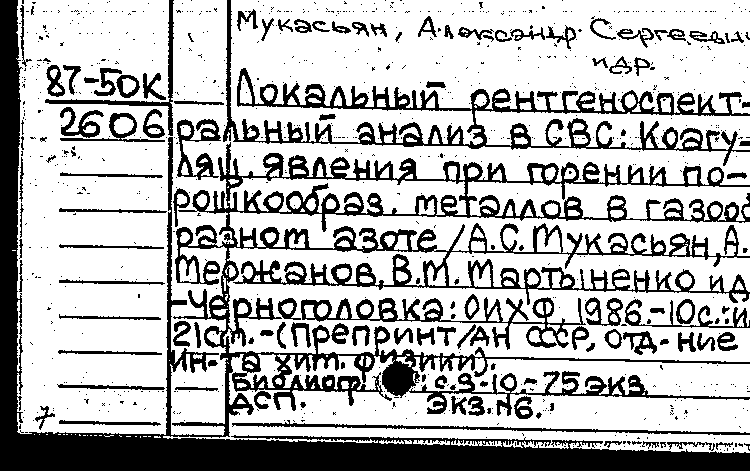 Мукасьян, Александр Сергеевич
и др.
87-50К
Локальный рентгеноспект-
2606
ральный анализ в СВС: Коагу-
ляц. явления при горении по-
рошкообраз. металлов в газооб
разном азоте / А.С. Мукасьян, А.
Мержанов, В.М. Мартыненко и д
-Черноголовка: ОИХФ, 1986.-10с.: и
21см. -(Препринт/АН СССР, Отд-ние
Ин-та хим. физики).
Библиогр.: с.9-10.- 75 экз.
ДСП. Экз.№6.
7